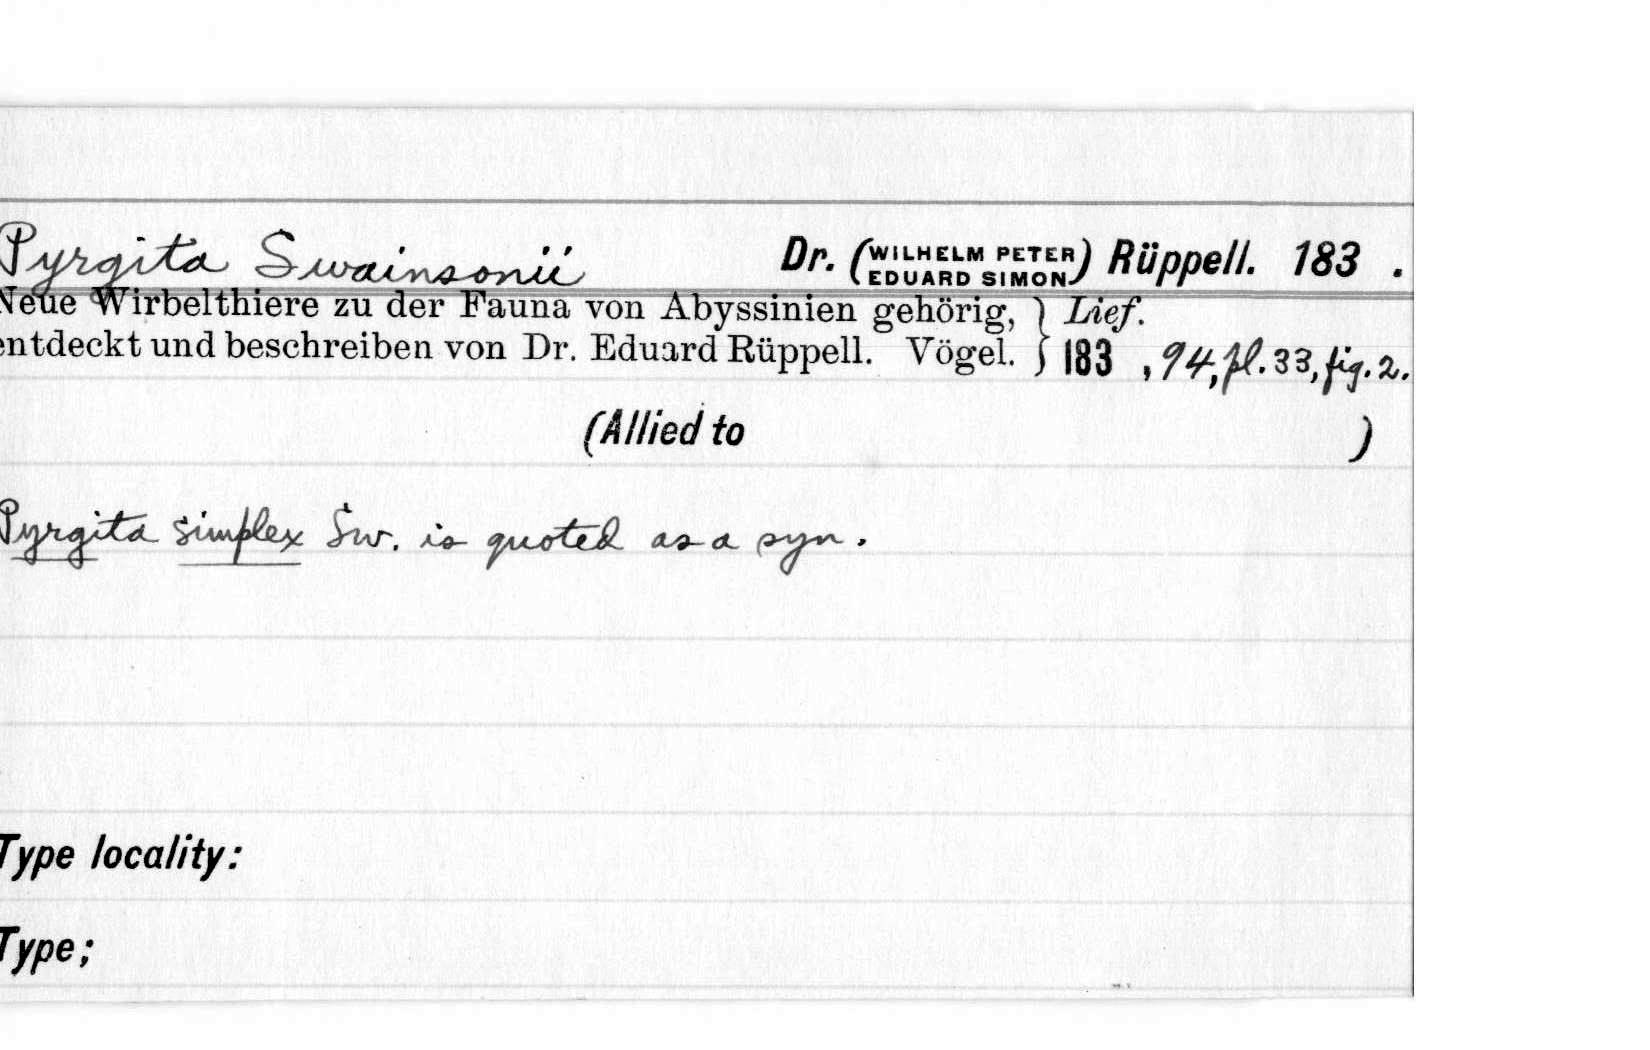 Pyrgita Swainsonii Dr. (WILHELM PETER EDUARD SIMON) Rüppell. 183 .
Neue Wirbelthiere zu der Fauna von Abyssinien gehörig, } Lief.
entdeckt und beschreiben von Dr. Eduard Rüppell. Vögel. } 183 , 94, pl. 33, fig. 2.
(Allied to )
Pyrgita simplex Sw. is quoted as a syn.
Type locality:
Type;